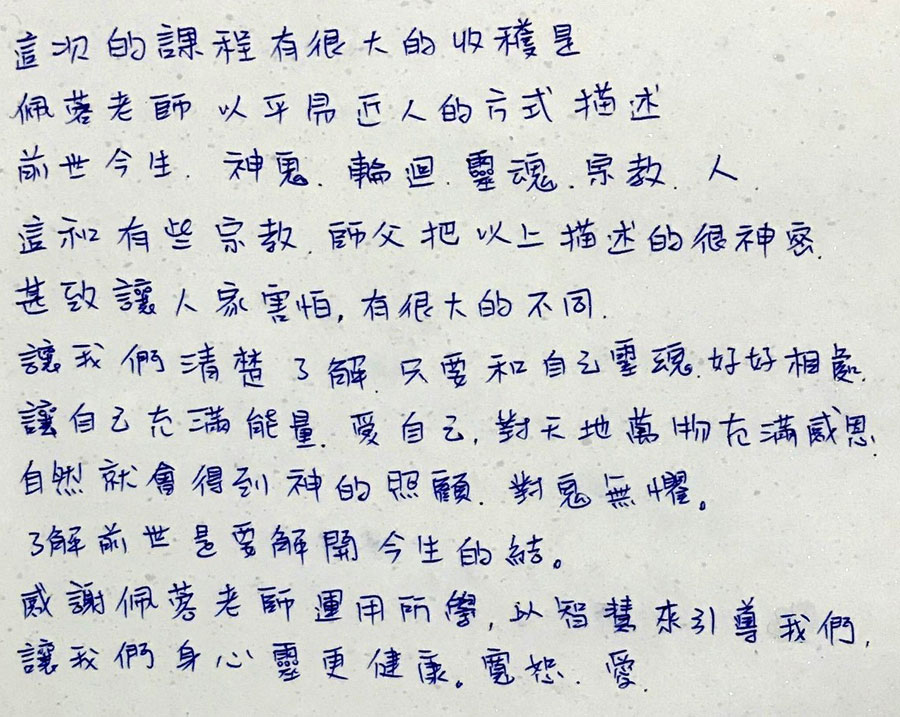 這次的課程有很大的收穫是
佩蓉老師以平易近人的方式描述
前世今生.神鬼.輪迴.靈魂.宗教.人
這和有些宗教.師父把以上描述的很神密.
甚致讓人家害怕,有很大的不同.
讓我們清楚了解.只要和自己靈魂.好好相處.
讓自己充滿能量.愛自己.對天地萬物充滿感恩.
自然就會得到神的照顧.對鬼無懼。
了解前世是要解開今生的結。
感謝佩蓉老師運用所學,以智慧來引導我們,
讓我們身心靈更健康。寬恕.愛.